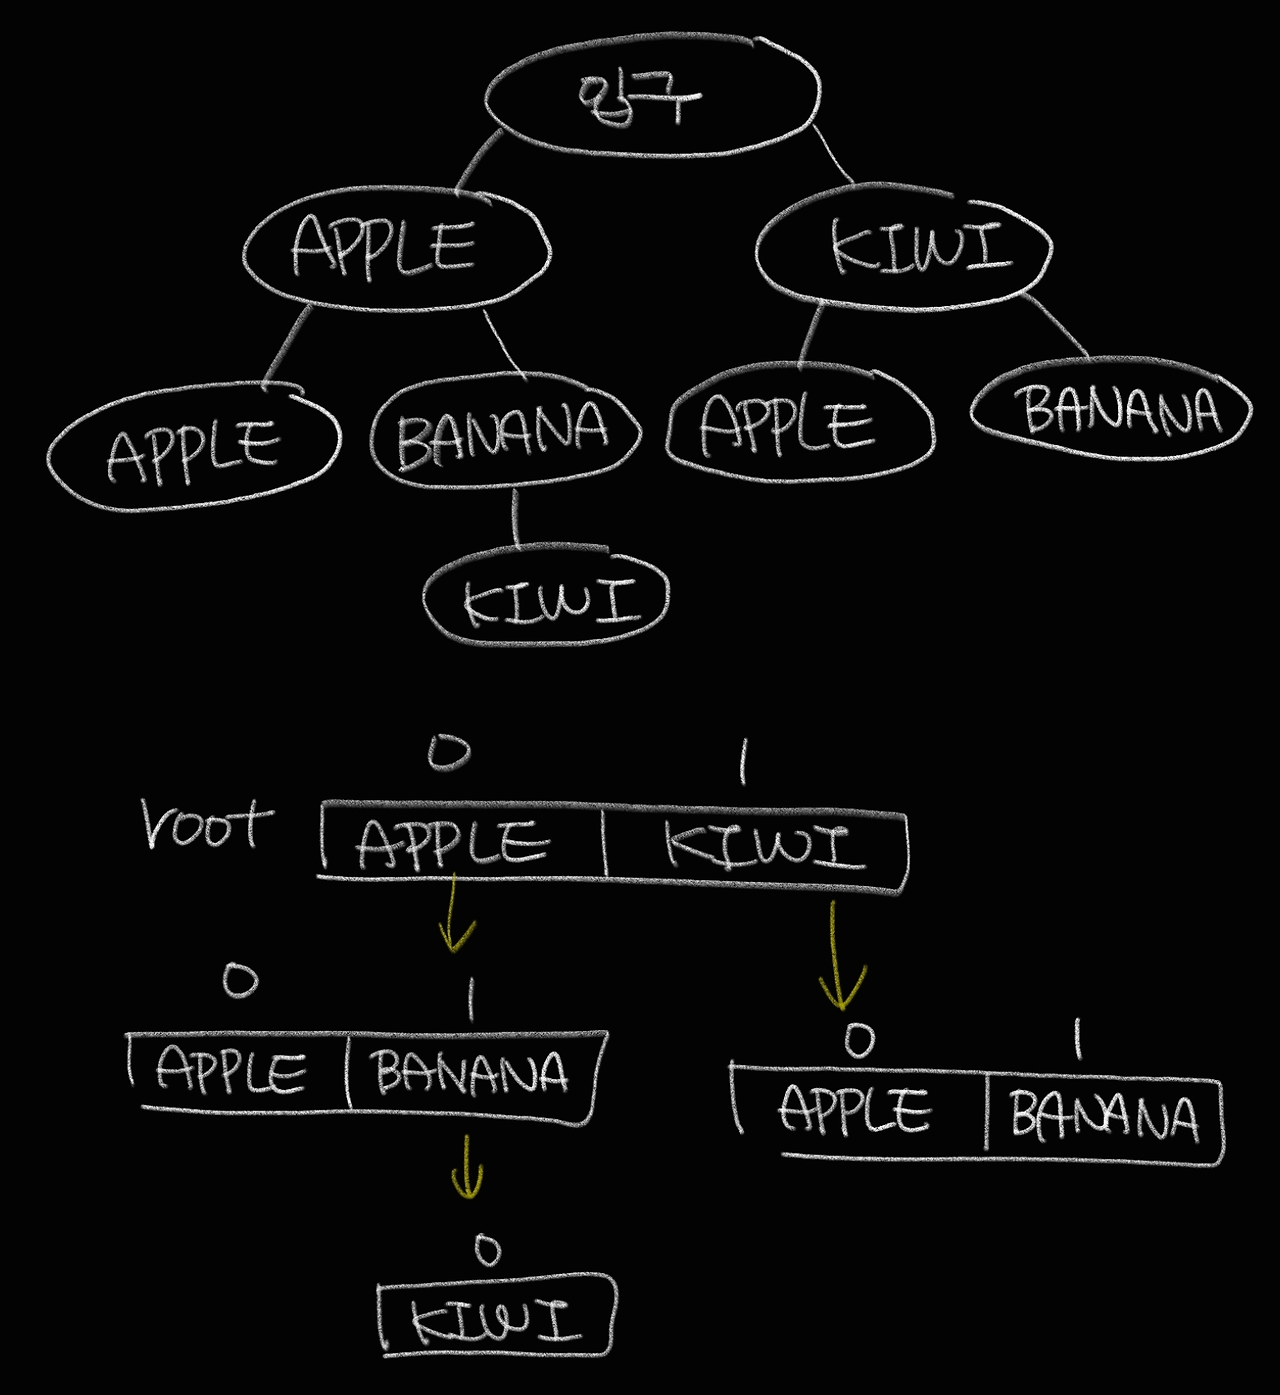 입구
APPLE KIWI
APPLE BANANA APPLE BANANA
KIWI
0 1
root APPLE KIWI
0 1
APPLE BANANA
0 1
APPLE BANANA
0
KIWI